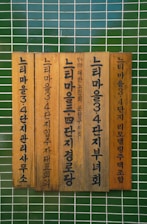 느티마을3·4단지관리사무소
느티마을3·4단지입주자대표회의
느티마을三四단지경로당
느티마을34단지부녀회
느티마을3·4단지리모델링주택조합